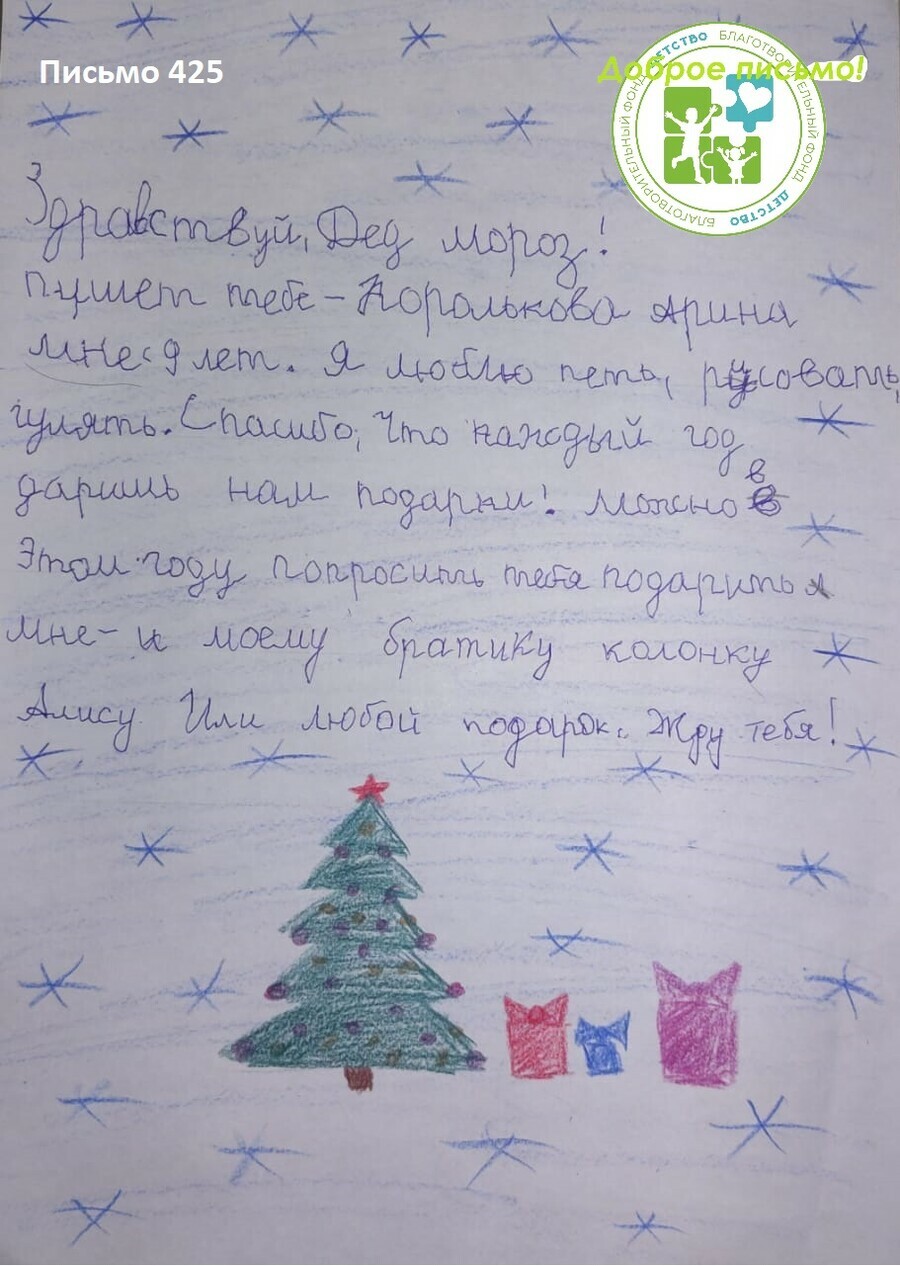 Письмо 425
Доброе письмо!
БЛАГОТВОРИТЕЛЬНЫЙ ФОНД ДЕТСТВО БЛАГОТВОРИТЕЛЬНЫЙ ФОНД ДЕТСТВО
Здравствуй, Дед мороз!
пишет тебе - Королькова Арина
мне 9 лет. Я люблю петь, рисовать,
гулять. Спасибо, что каждый год
даришь нам подарки! можно в
Этом году попросить тебя подарить
мне - и моему братику колонку
Алису Или любой подарок. Жду тебя!